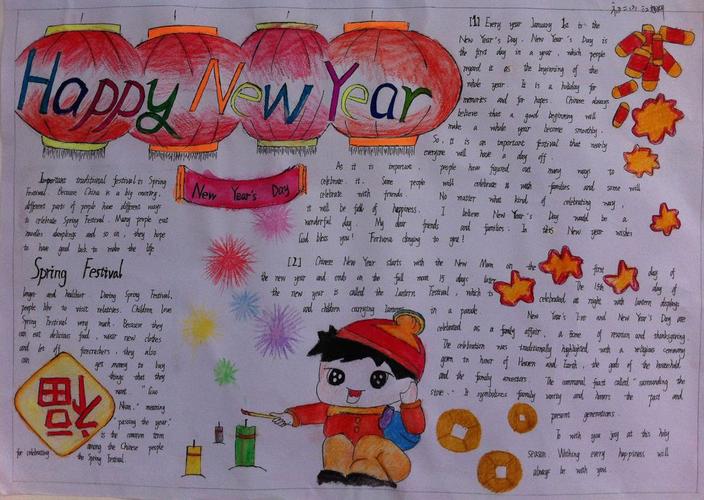 Happy New Year
New Year's Day
[1] Every year January 1s to the
New Year's Day. New Year's Day is
the first day in a year, which people
regard it as the beginning of the
whole year. It is a holiday for
memories and for hopes. Chinese always
believes that a good beginning will
make a whole year become smoothly.
So, it is an important festival that nearly
everyone will have a day off.
As it is important people have figured out many ways to
celebrate it. Some people will celebrate it with families and some will
celebrate with friends. No matter what kind of celebrating way,
it will be full of happiness. I believe New Year's Day would be a
wonderful day. My dear friends and families. In this New year wishes
God bless you! Fortuna clinging to you!
Important traditional festival is Spring
Festival. Because China is a big country,
different parts of people have different ways
to celebrate Spring Festival. Many people eat
noodles dumplings and so on, they hope
to have good luck to make the life
Spring Festival
longer and healthier. During Spring Festival,
people like to visit relatives. Children love
Spring Festival very much. Because they
can eat delicious food, wear new clothes
and let off firecrackers, they also
can get money to buy
things that they
want. "Guo
Nian," meaning
passing the year,"
is the common term
among the Chinese people
for celebrating the Spring Festival.
福
[2] Chinese New Year starts with the New Moon on the first day of
the new year and ends on the full moon 15 days later. The 15th day of
the new year is called the Lantern Festival, which is celebrated at night with lantern displays
and children carrying lanterns in a parade.
New Year's Eve and New Year's Day are
celebrated as a family affair, a time of reunion and thanksgiving.
The celebration was traditionally highlighted with a religious ceremony
given in honor of Heaven and Earth, the gods of the household
and the family ancestors. The communal feast called "surrounding the
stove". It symbolizes family worthy and honors the past and
present generations.
To wish you joy at this holy
season. Wishing every happiness will
always be with you.